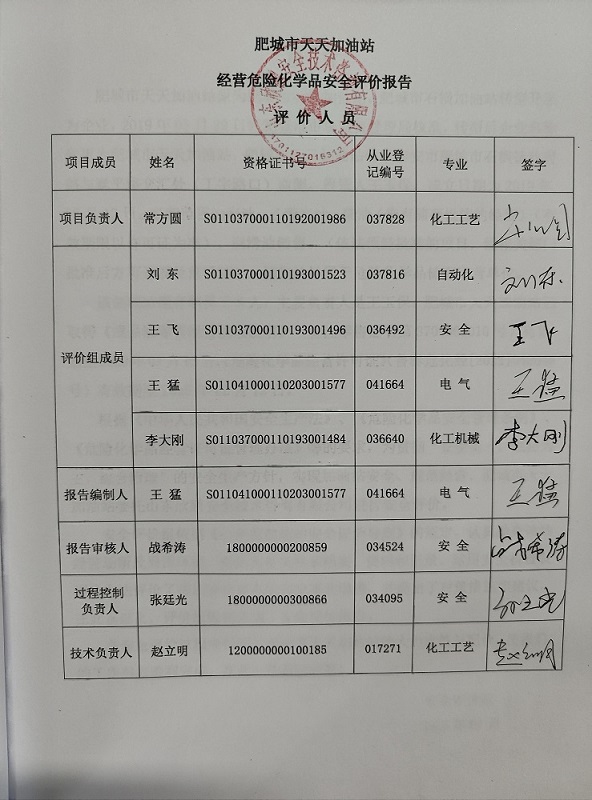 肥城市天天加油站
经营危险化学品安全评价报告
评价人员
项目成员 姓名 资格证书号 从业登记编号 专业 签字
项目负责人 常方圆 S011037000110192001986 037828 化工工艺
评价组成员 刘东 S011037000110193001523 037816 自动化 刘东
王飞 S011037000110193001496 036492 安全 王飞
王猛 S011041000110203001577 041664 电气 王猛
李大刚 S011037000110193001484 036640 化工机械 李大刚
报告编制人 王猛 S011041000110203001577 041664 电气 王猛
报告审核人 战希涛 1800000000200859 034524 安全 战希涛
过程控制负责人 张廷光 1800000000300866 034095 安全
技术负责人 赵立明 1200000000100185 017271 化工工艺 赵立明